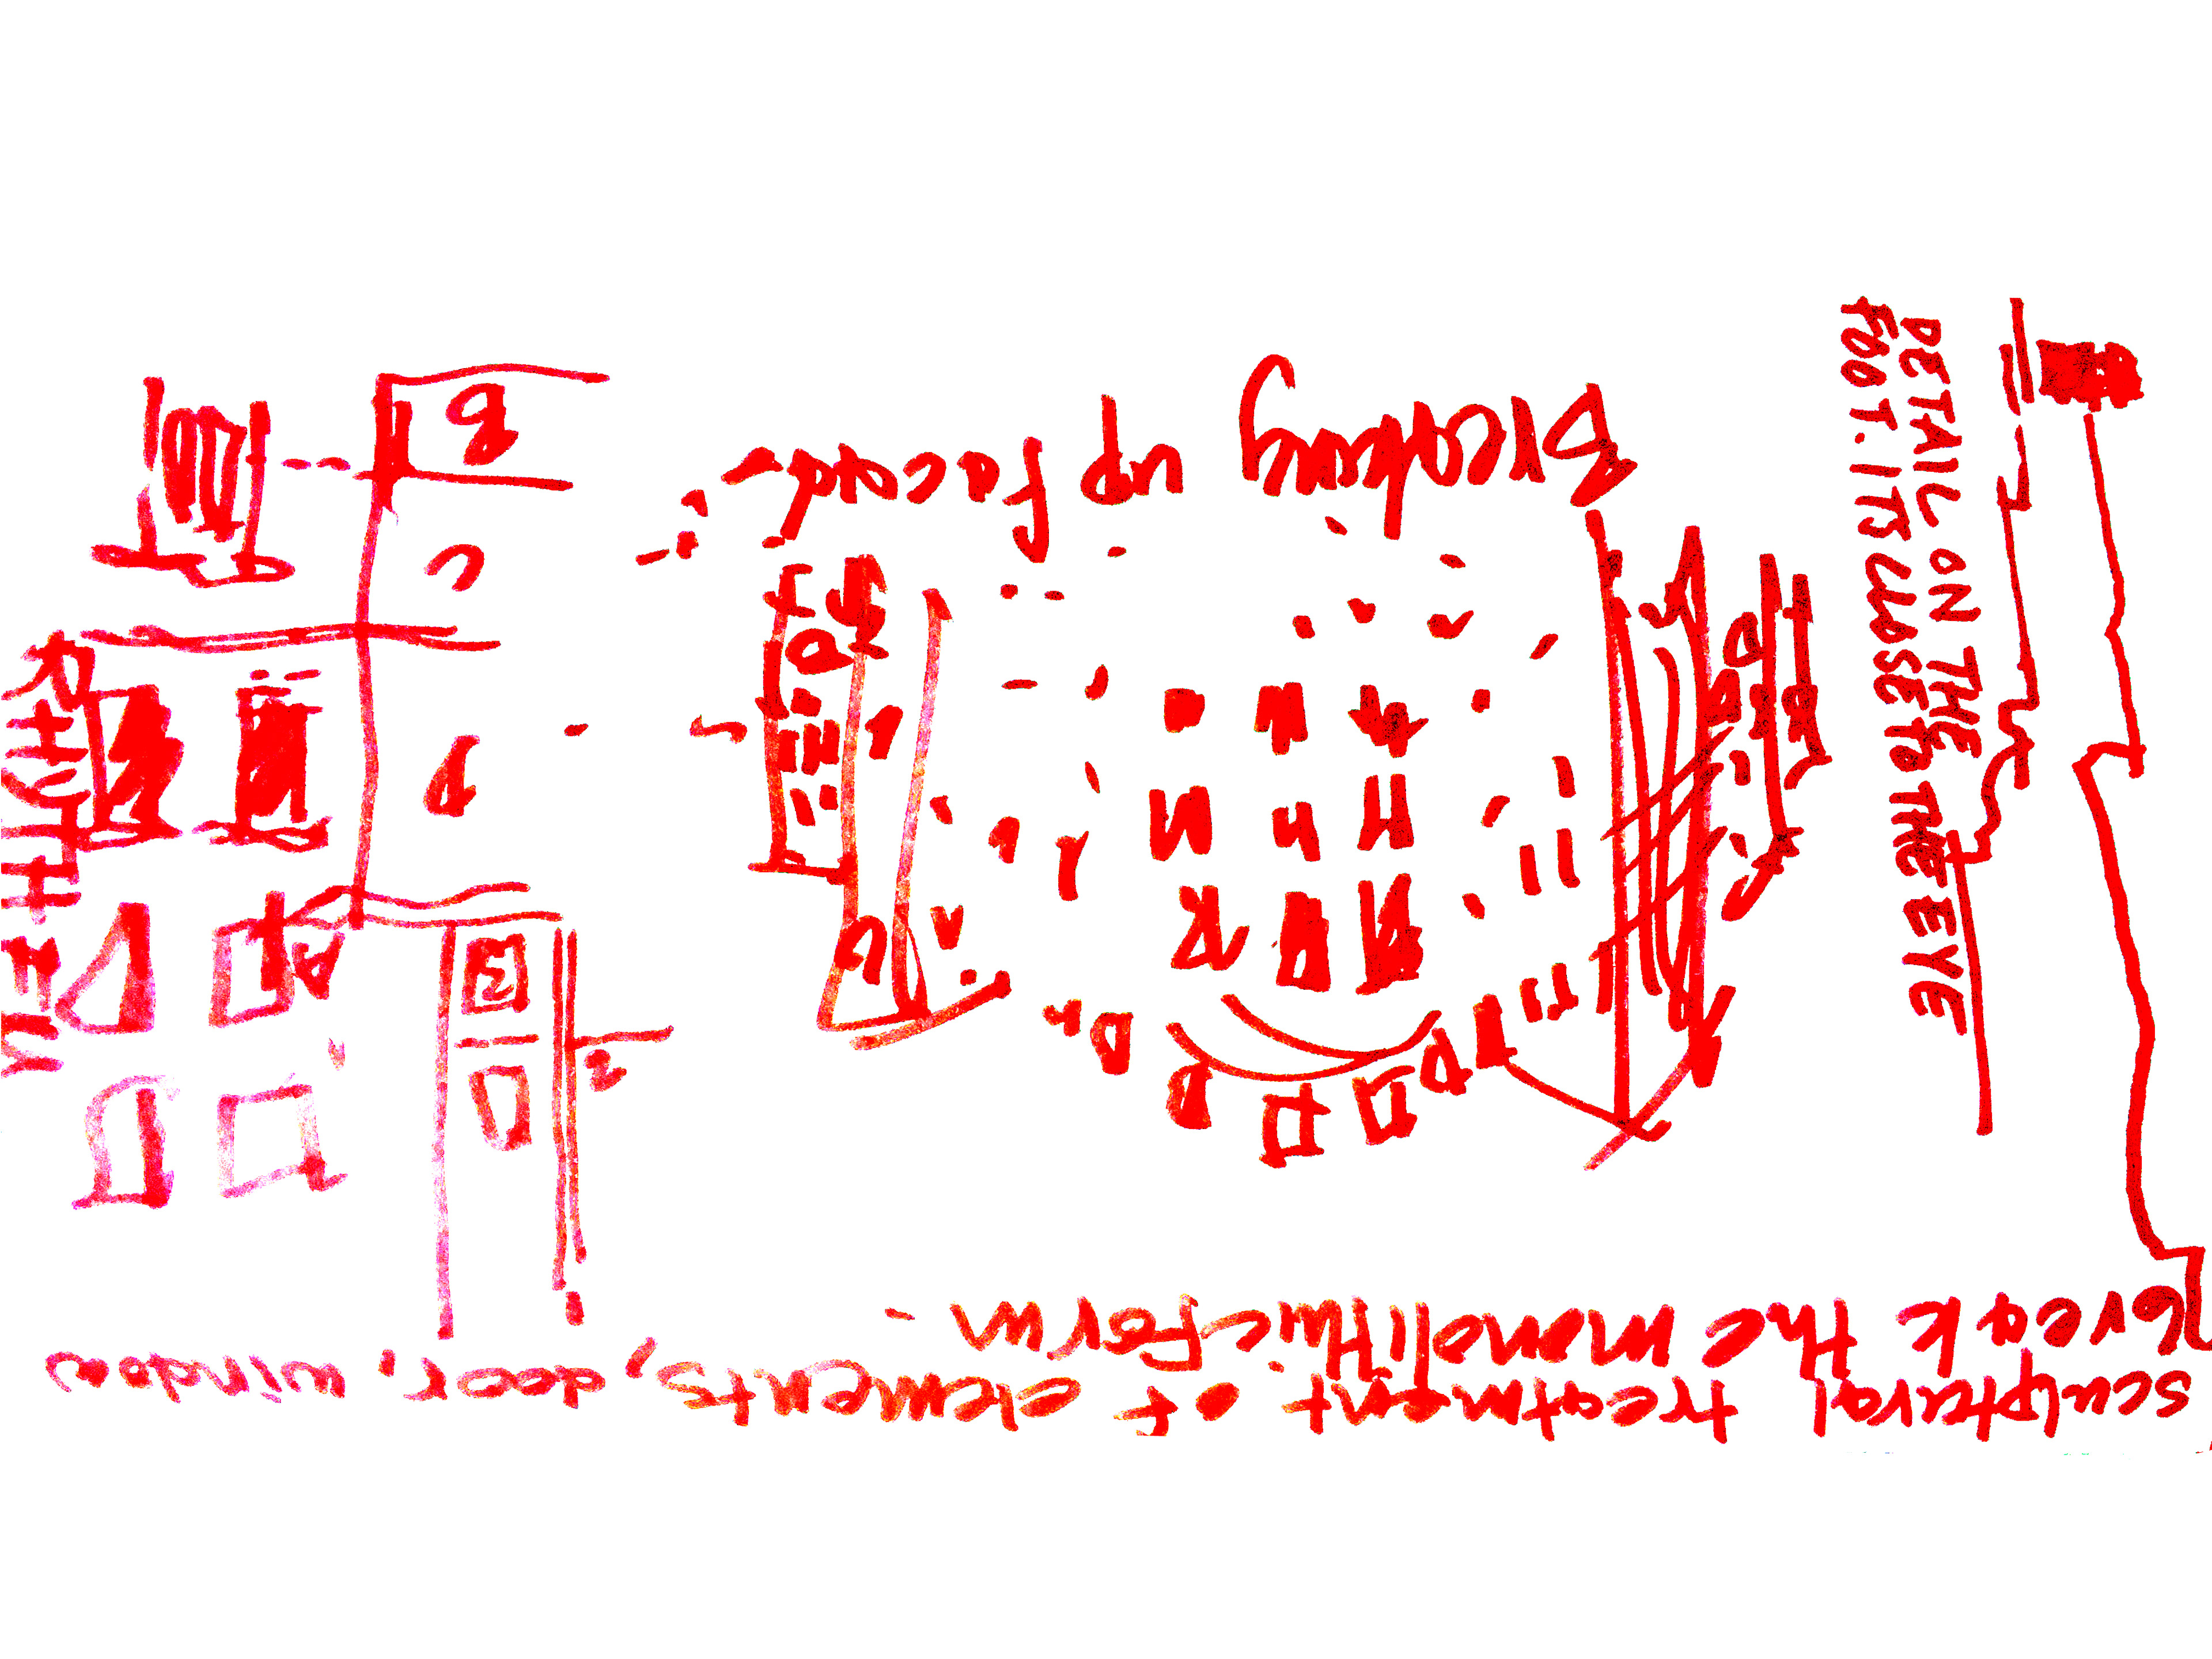 sculptural treatment of elements, door, window
break the monolithic form -
Breaking up facade
DETAIL ON THE
FOOT. ITS CLOSER TO THE EYE
RHYTHEM